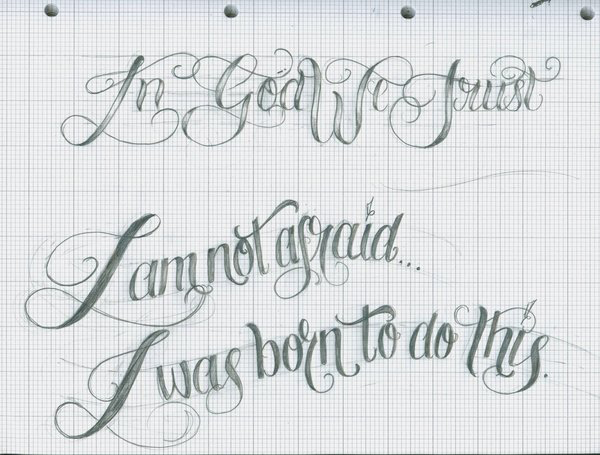 In God We Trust
I am not afraid...
I was born to do this.